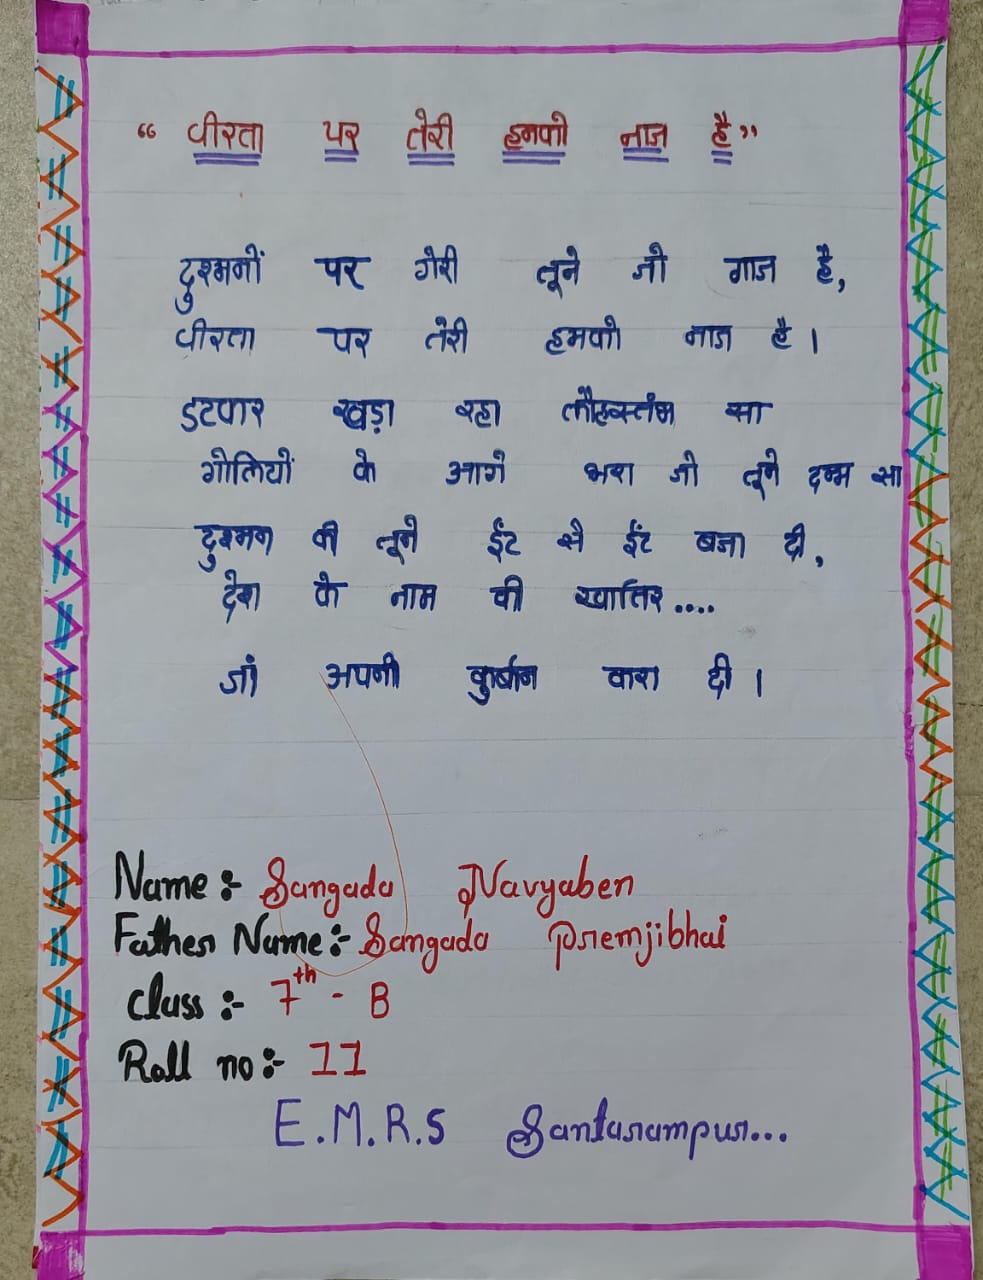 “ वीरता पर तेरी हमको नाज है ”
दुश्मनों पर गेरी तूने जो गाज है,
वीरता पर तेरी हमको नाज है ।
डटकर खड़ा रहा लौहस्तंभ सा
गोलियों के आगे भरा जो तूने दम्भ सा
दुश्मन की तूने ईंट से ईंट बजा दी,
देश के नाम की खातिर....
जां अपनी कुर्बान करा दी ।
Name :- Sangada Navyaben
Father Name :- Sangada Premjibhai
Class :- 7th - B
Roll no :- 11
E.M.R.S Santarampur...